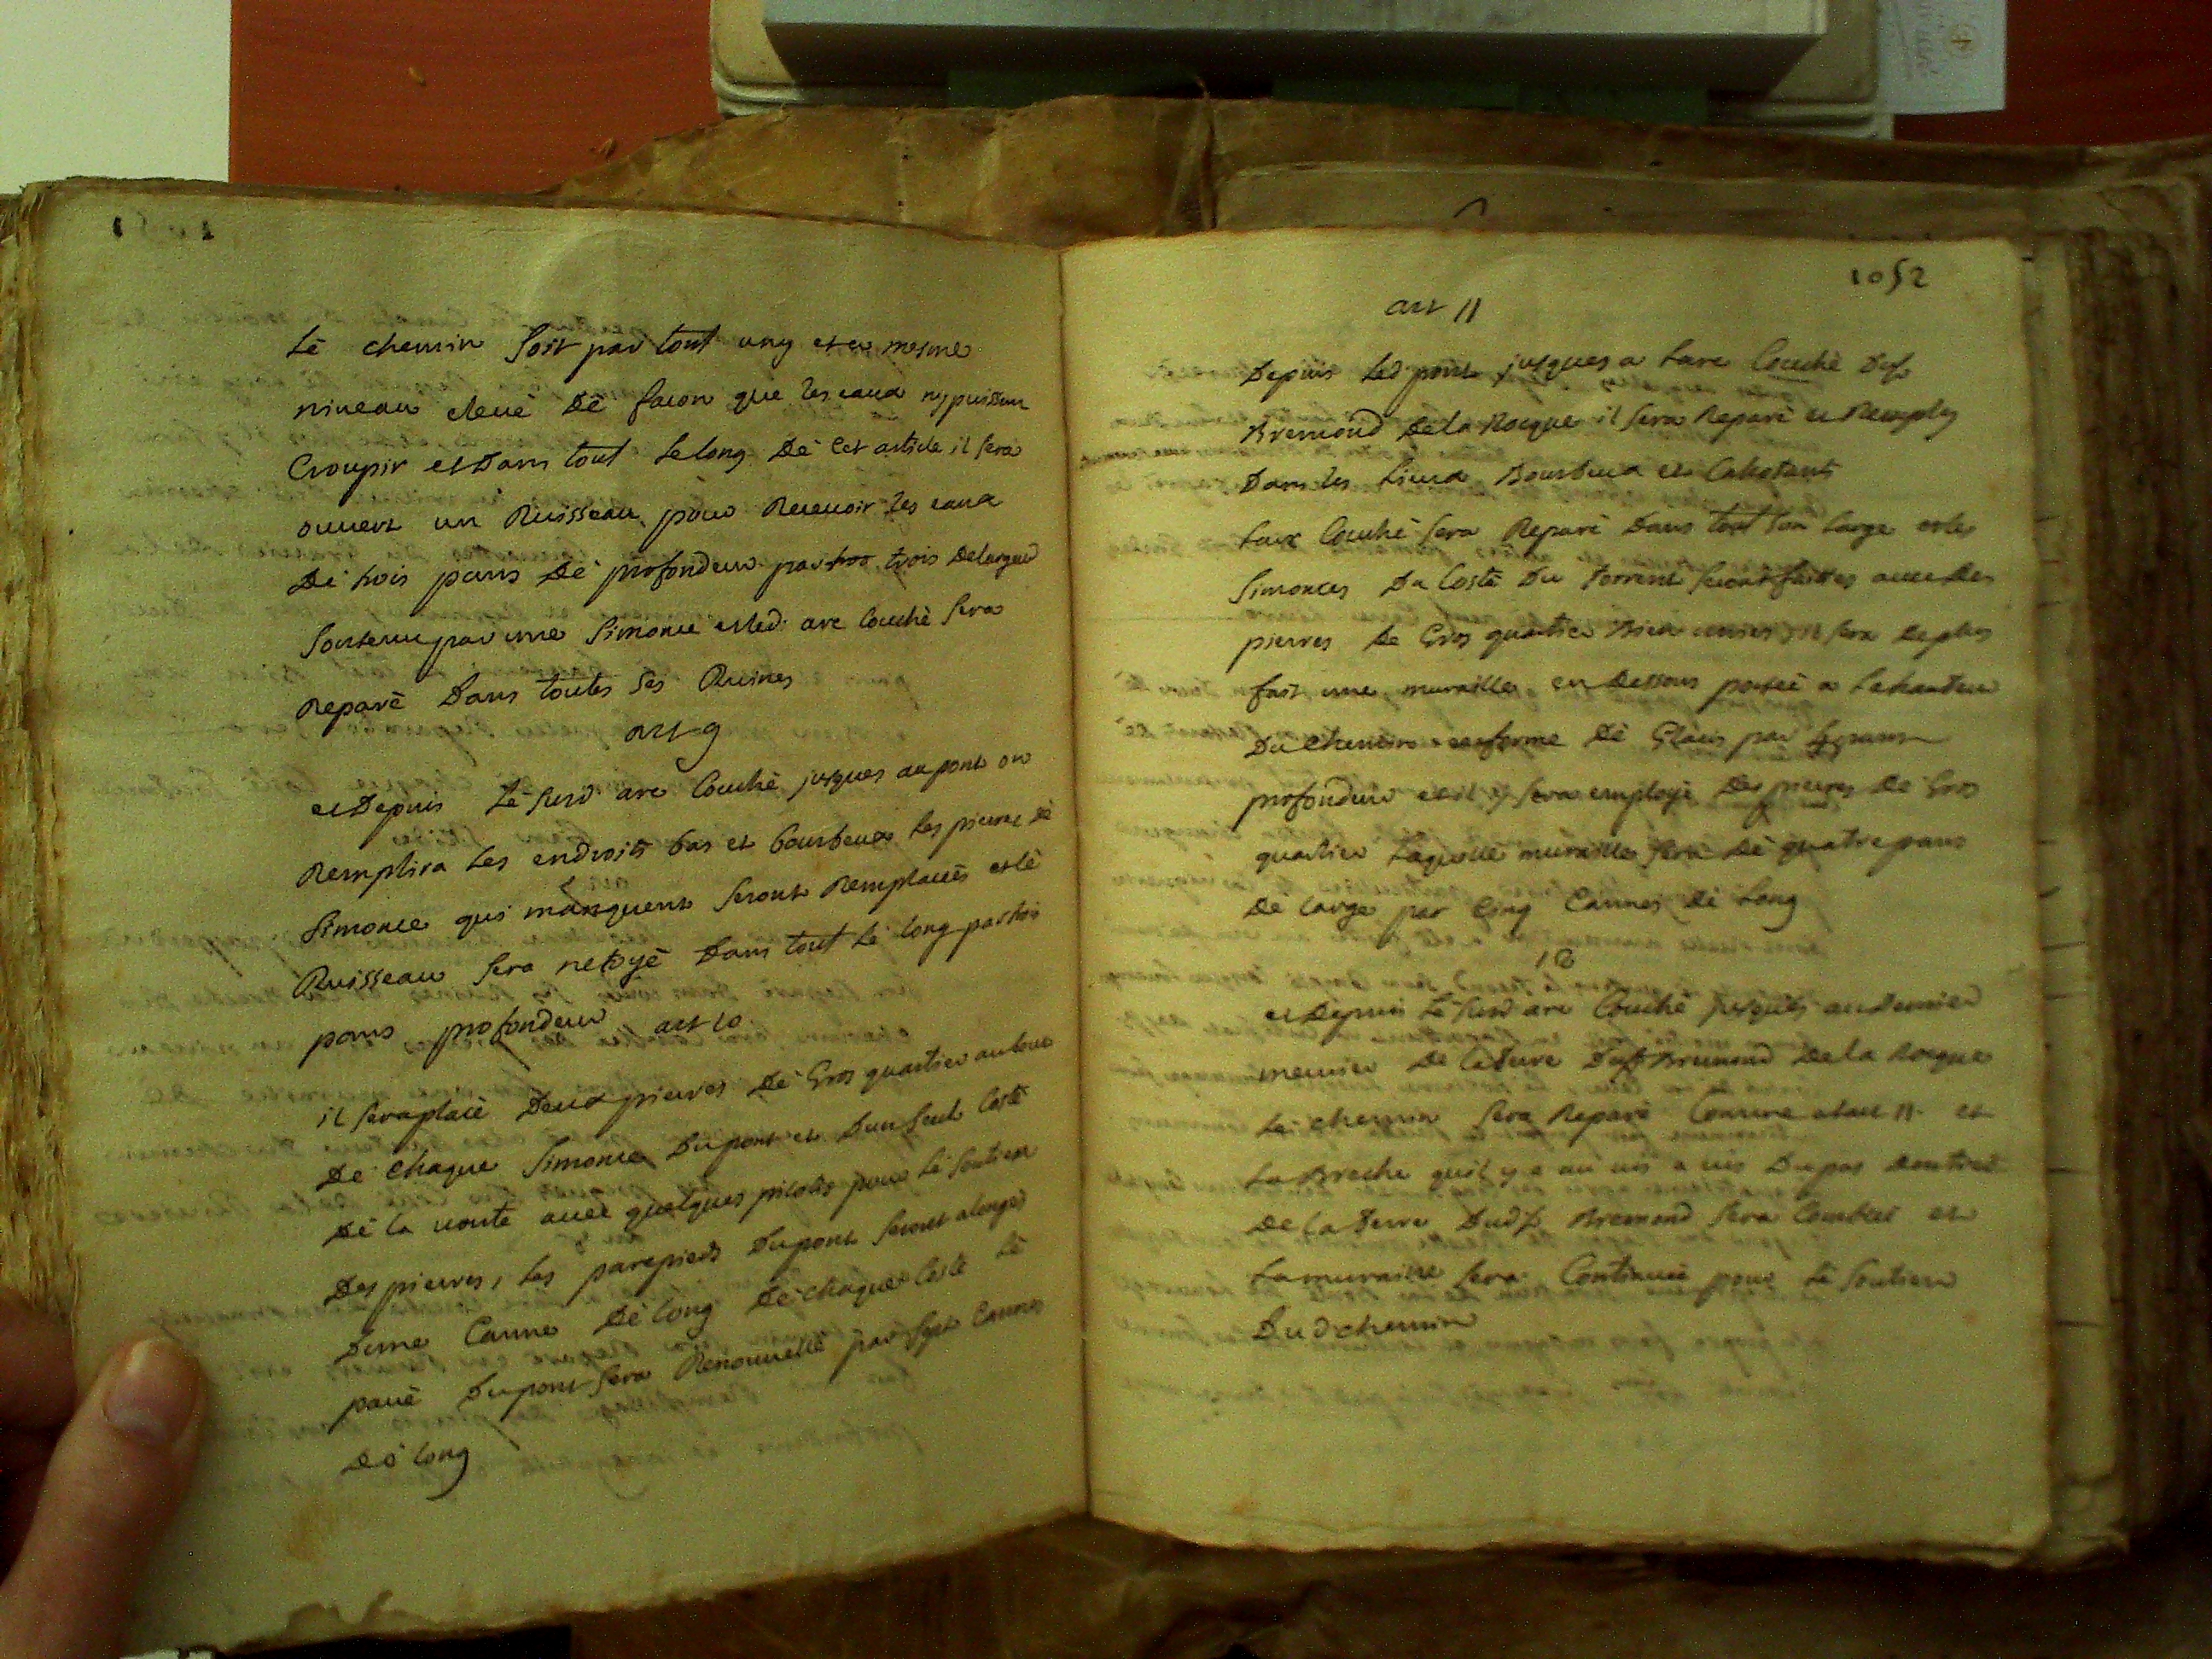 Lè chemin soit par tout uny et a mesme
niveau eleuè dè facon que les eaux ny puissent
Croupir et Dans tout Le long Dè Cet article il sera
ouvert un Ruisseau pour Recevoir les eaux
Dè trois pans Dè profondeur par trois De largeur
Soutenu par une Simouce et led. arc Couchè sera
Reparè Dans toutes Ses Ruines
art 9
et Depuis Lè susd arc Couchè jusques au pont on
Remplira Les endroits bas et bourbeux Les pierres dè
Simouce qui manquent seront Remplacees et lè
Ruisseau sera netoyè Dans tout Lè long par trois
pans profondeur
art 10
il sera placè Deux pierres Dè Gros quartier au bout
De chaque Simouce Du pont et D'un seul Costè
Dè la voute avec quelques pilotis pour Lè soutien
Des pierres, Les parepieds Du pont seront alongés
D'une Canne Dè long De chaque Costè Lè
pavè Du pont sera Renouvellè par sept Cannes
Dè long
1052
art 11
Depuis Led pont jusques a L'arc Couchè Du sr
Bremond De la Rocque il sera Reparè et Remply
Dans les Lieux Bourbeux et Cahotants
L'arc Couchè sera Reparè Dans tout son large et les
Simouces Du Costè Du Torrent seront faittes avec Des
pierres De Gros quartier Bien unies, il sera De plus
fait une muraille en Dessous portèe a La hauteur
Du chemin en forme Dè Glacis par 4 pans
profondeur et il y sera employè Des pierres De Gros
quartier Laquelle muraille sera Dè quatre pans
De large par Cinq Cannes Dè Long
12
et Depuis Lè susd arc Couchè jusques au Dernier
meurier De La Terre Du sr Bremond De la Rocque
Lè chemin sera Reparè Comme a l'art 11. et
La Breche qu'il y a au vis a vis Du pas
De la Terre Dud sr Bremond sera Comblée et
La muraille sera Continuèe pour Lè soutien
Dud chemin